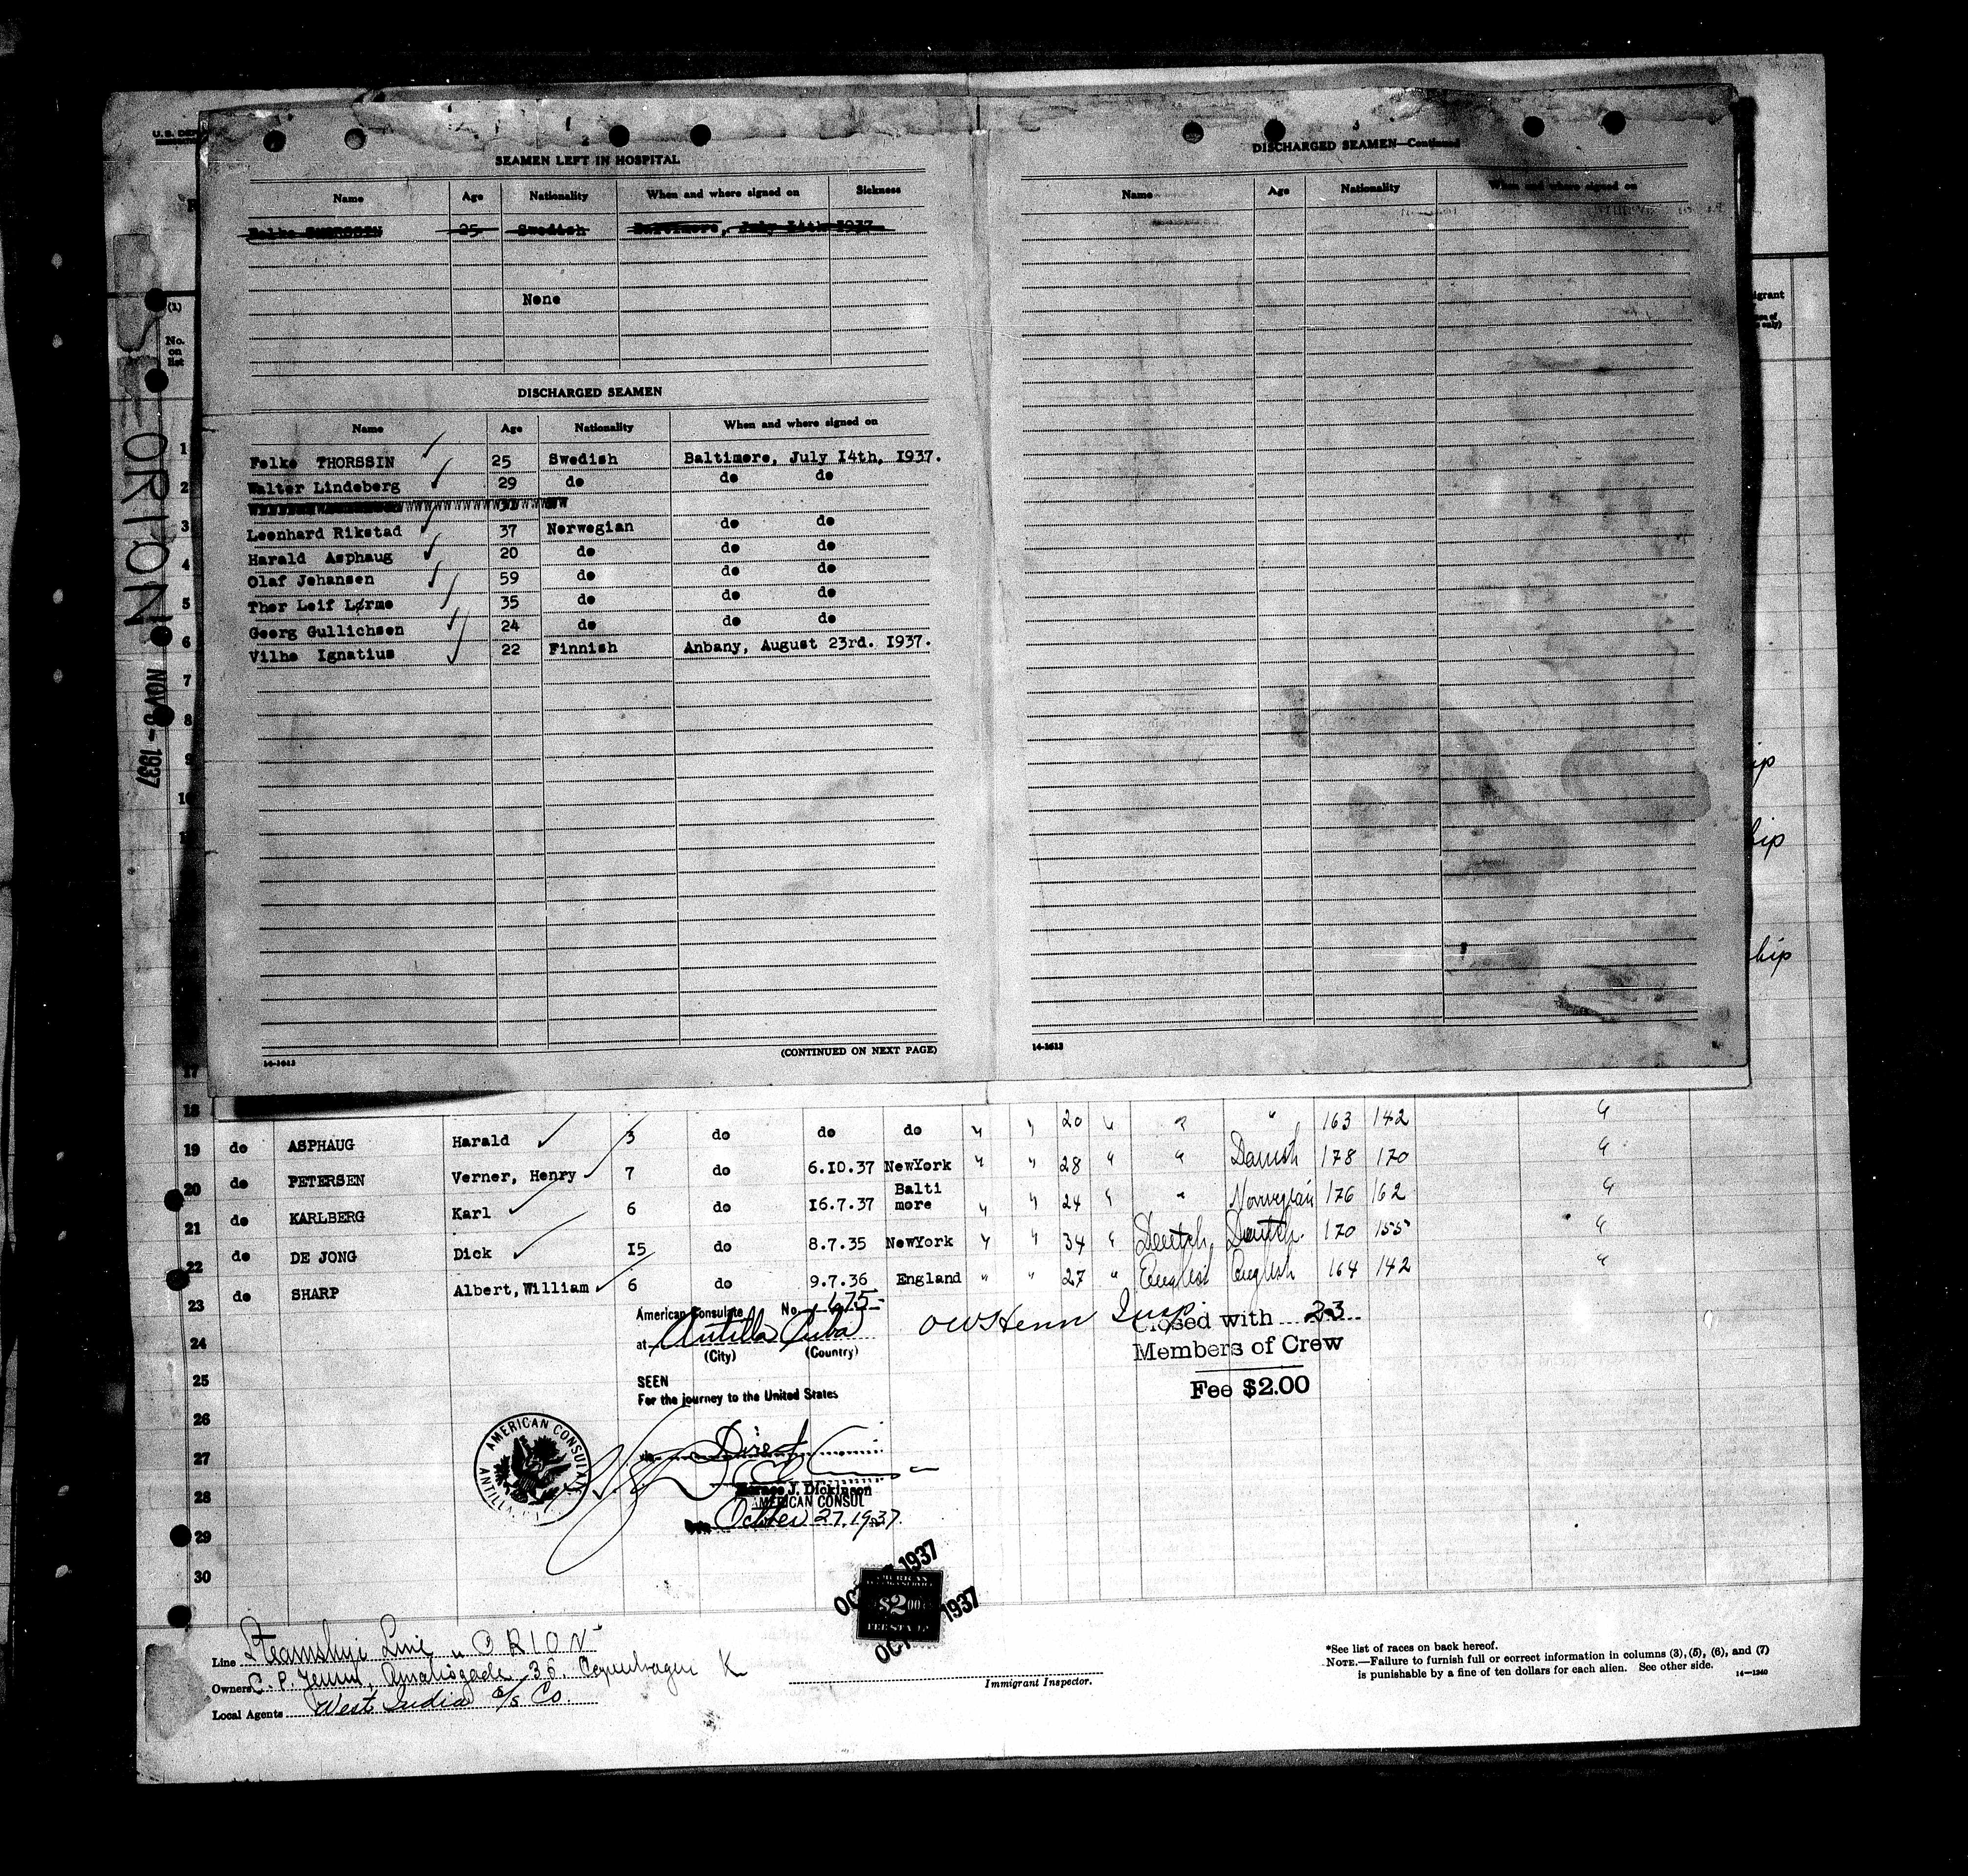 U.S. DE
SEAMEN LEFT IN HOSPITAL
Name Age Nationality When and where signed on Sickness
Folke THORSSIN 25 Swedish Baltimore, July 14th 1937
None
DISCHARGED SEAMEN
Name Age Nationality When and where signed on
Folke THORSSIN 25 Swedish Baltimore, July I4th, I937.
Walter Lindeberg 29 do do do
Leonhard Rikstad 37 Norwegian do do
Harald Asphaug 20 do do do
Olaf Johansen 59 do do do
Thor Leif Lørmo 35 do do do
Georg Gullichsen 24 do do do
Vilho Ignatius 22 Finnish Anbany, August 23rd. I937.
(CONTINUED ON NEXT PAGE)
14-1613
3
DISCHARGED SEAMEN—Continued
Name Age Nationality When and where signed on
14-1613
(1)
No. on list
ORION
NOV 3 - 1937
1
2
3
4
5
6
7
8
9
10
17
18 20 " " " 163 142 "
19 do ASPHAUG Harald 3 do do do " " 28 " " Danish 178 170 "
20 do PETERSEN Verner, Henry 7 do 6.I0.37 NewYork " " 24 " " Norwegian 176 162 "
21 do KARLBERG Karl 6 do I6.7.37 Balti more " " 34 " Deutch Deutch 170 155 "
22 do DE JONG Dick I5 do 8.7.35 NewYork " " 27 " English English 164 142 "
23 do SHARP Albert,William 6 do 9.7.36 England
24
25
26
27
28
29
30
American Consulate No. 675-
at Antilla Cuba
(City) (Country)
SEEN
For the journey to the United States
Direct
Horace J. Dickinson
AMERICAN CONSUL
Date October 27, 1937.
AMERICAN CONSULATE
ANTILLA
Insp.
Closed with 23
Members of Crew
Fee $2.00
OCT 1937
AMERICAN
$2.00
FEE STAMP
OCT 1937
Line Steamship Line "ORION"
Owners C. P. Jensen, Amaliegade 36. Copenhagen K
Local Agents West India S/S Co.
Immigrant Inspector.
*See list of races on back hereof.
NOTE.—Failure to furnish full or correct information in columns (3), (5), (6), and (7)
is punishable by a fine of ten dollars for each alien. See other side.
14—1240
igrant
only)
ip
hip
ship